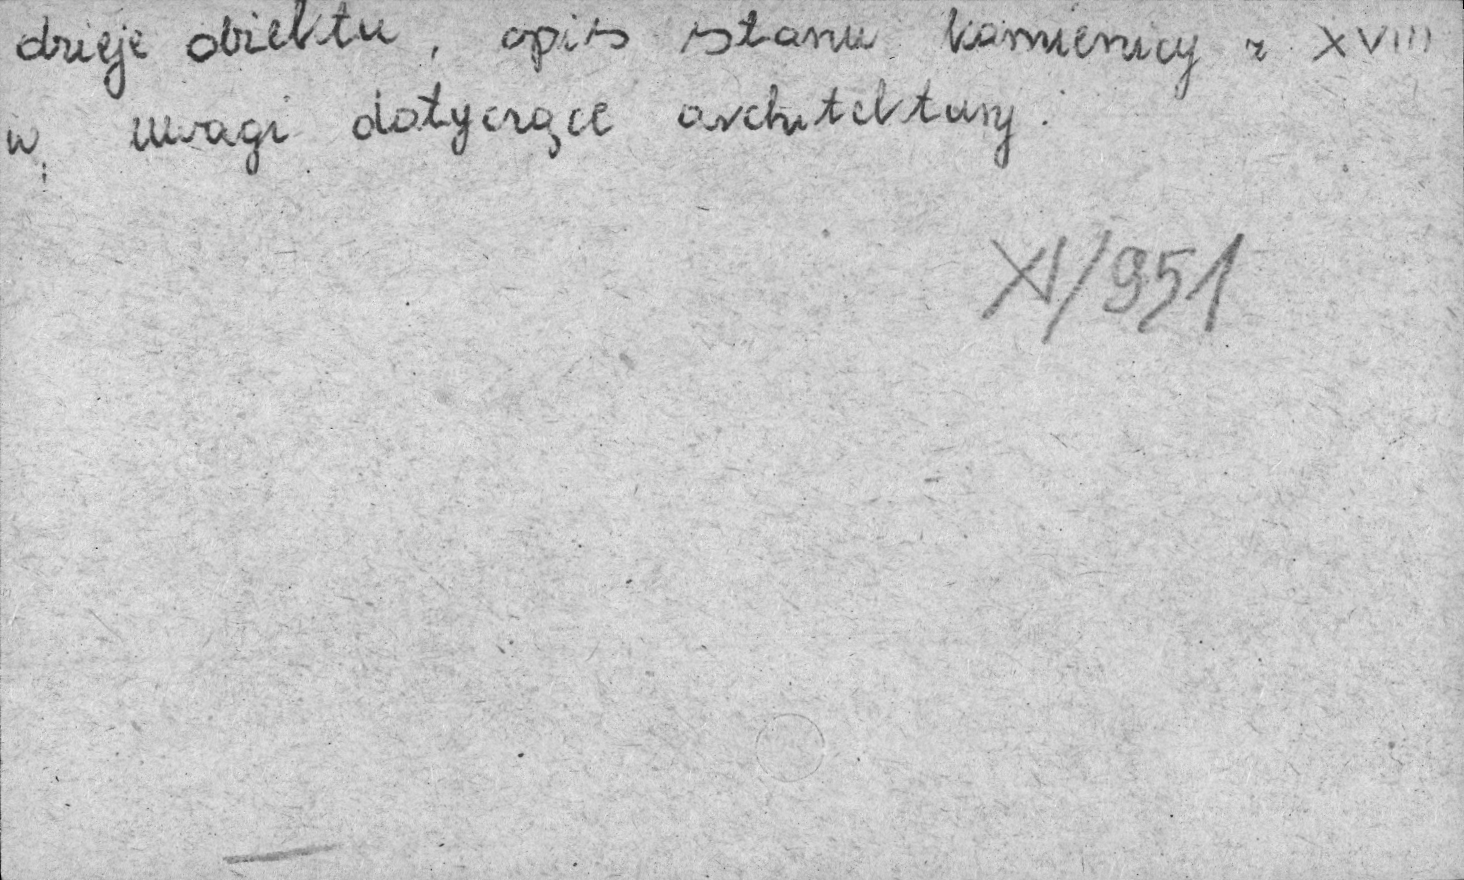 dzieje obiektu, opis stanu kamienicy z XVIII
w; uwagi dotyczące architektury.
XI/951